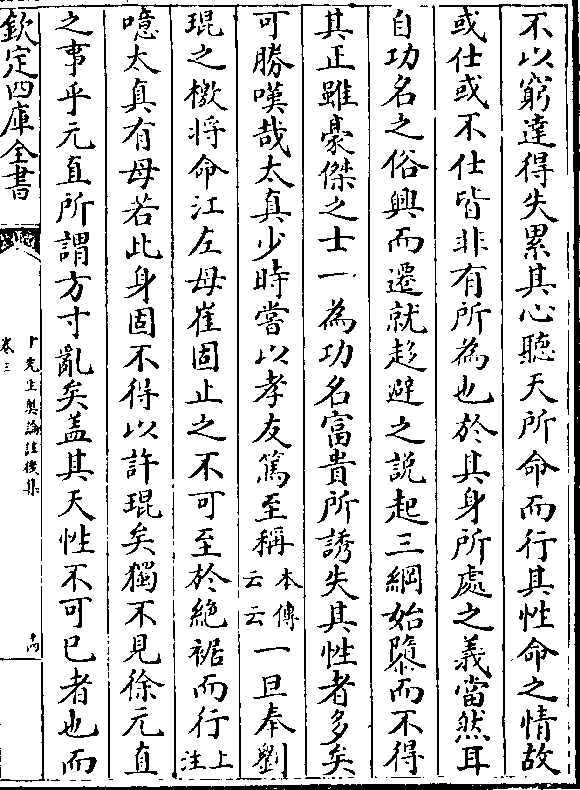 不以窮達得失累其心聽天所命而行其性命之情故
或仕或不仕皆非有所為也於其身所處之義當然耳
自功名之俗興而遷就趍避之説起三綱始隳而不得
其正雖豪傑之士一為功名富貴所誘失其性者多矣
可勝嘆哉太真少時嘗以孝友篤至稱本傳云云一旦奉劉
琨之檄将命江左母崔固止之不可至於絶裾而行上注
噫太真有母若此身固不得以許琨矣獨不見徐元直
之事乎元直所謂方寸亂矣盖其天性不可已者也而
欽定四庫全書
卷三